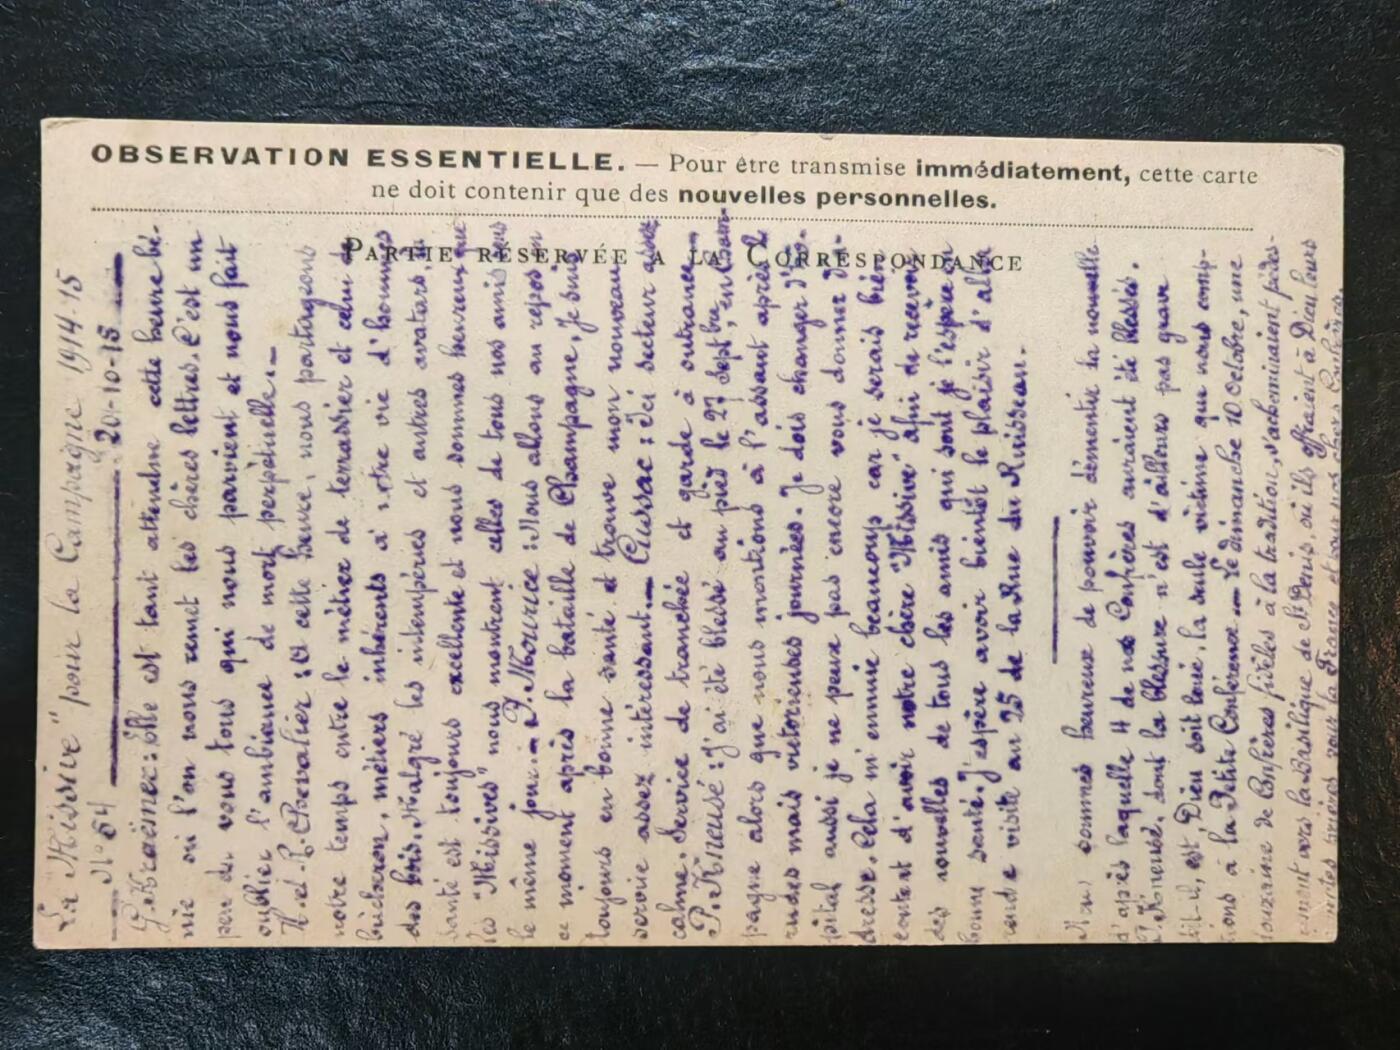 OBSERVATION ESSENTIELLE. — Pour être transmise immédiatement, cette carte
ne doit contenir que des nouvelles personnelles.
PARTIE RÉSERVÉE A LA CORRESPONDANCE
La "Missive" pour la Campagne 1914-15
N° 64 20-10-15
G. : Elle est tant attendue cette heure bé-
nie où l'on nous remet les chères lettres. C'est un
peu de vous tous qui nous parvient et nous fait
oublier l'ambiance de mort perpétuelle. —
H. et R. Chevalier : A cette heure, nous partageons
notre temps entre le métier de terrassier et celui de
bûcheron, métiers inhérents à notre vie d'hommes
des bois. Malgré les intempéries et autres avatars, la
santé est toujours excellente et nous sommes heureux que
les "Missives" nous montrent celles de tous nos amis
le même jour. — J. Mourice : Nous allons au repos en
ce moment après la bataille de Champagne. Je suis
toujours en bonne santé et trouve mon nouveau
service assez intéressant. — Cussac : Ici secteur assez
calme. Service de tranchée et garde à outrance
P. Kneusé : J'ai été blessé au pied le 27 septbre, en Cham-
pagne alors que nous montions à l'assaut après de
rudes mais victorieuses journées. Je dois changer d'hô-
pital aussi je ne peux pas encore vous donner d'a-
dresse. Cela m'ennuie beaucoup car je serais bien
content d'avoir notre chère "Missive" afin de recevoir
des nouvelles de tous les amis qui sont je l'espère en
bonne santé. J'espère avoir bientôt le plaisir d'aller
rendre visite au 25 de la Rue du Ruisseau.
Nous sommes heureux de pouvoir démentir la nouvelle
d'après laquelle 4 de nos Confrères auraient été blessés.
P. Kneusé, dont la blessure n'est d'ailleurs pas grave
est, Dieu soit loué, la seule victime que nous comp-
tions à la Petite Conférence — Le dimanche 10 Octobre, une
douzaine de Confrères fidèles à la tradition, s'acheminaient pédes-
trement vers la Basilique de St Denis, où ils offraient à Dieu leurs
prières pour la France et pour nos chers Confrères.